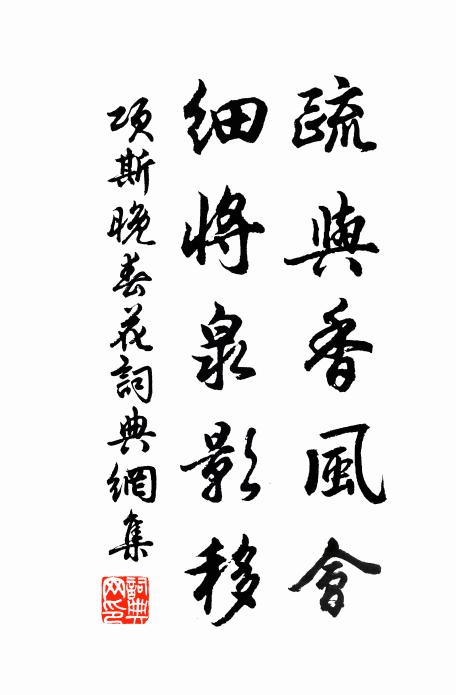 疏與香風會
細將泉影移
項斯晚春花詞典網集
詞典网印